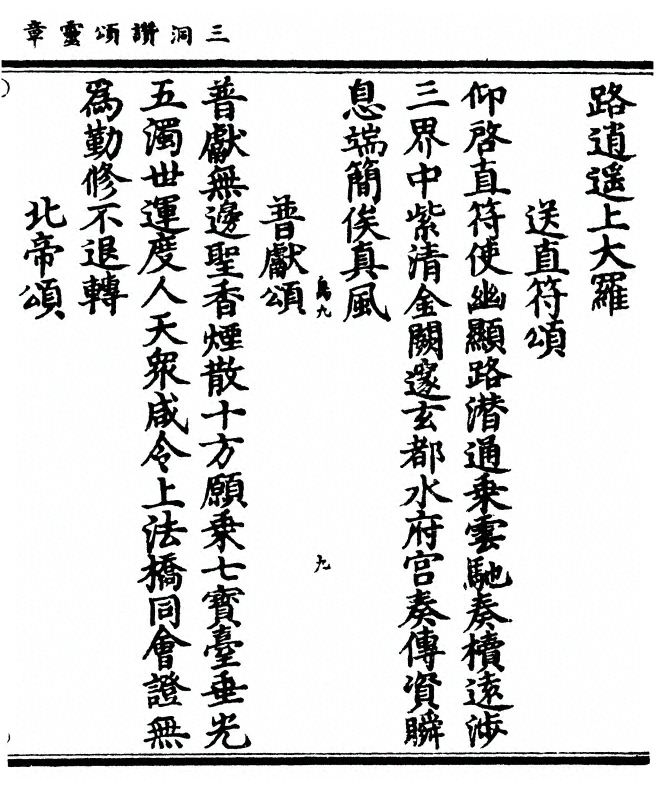 三洞讚頌靈章
路逍遥上大羅
送直符頌
仰啓直符使幽顯路潜通乗雲馳奏櫝遠涉
三界中紫清金闕邃玄都水府宫奏傳資瞬
息端簡俟真風
鳥九
九
普獻頌
普獻無邊聖香煙散十方願乗七寳臺垂光
五濁世運度人天衆咸令上法橋同會證無
為勤修不退轉
北帝頌